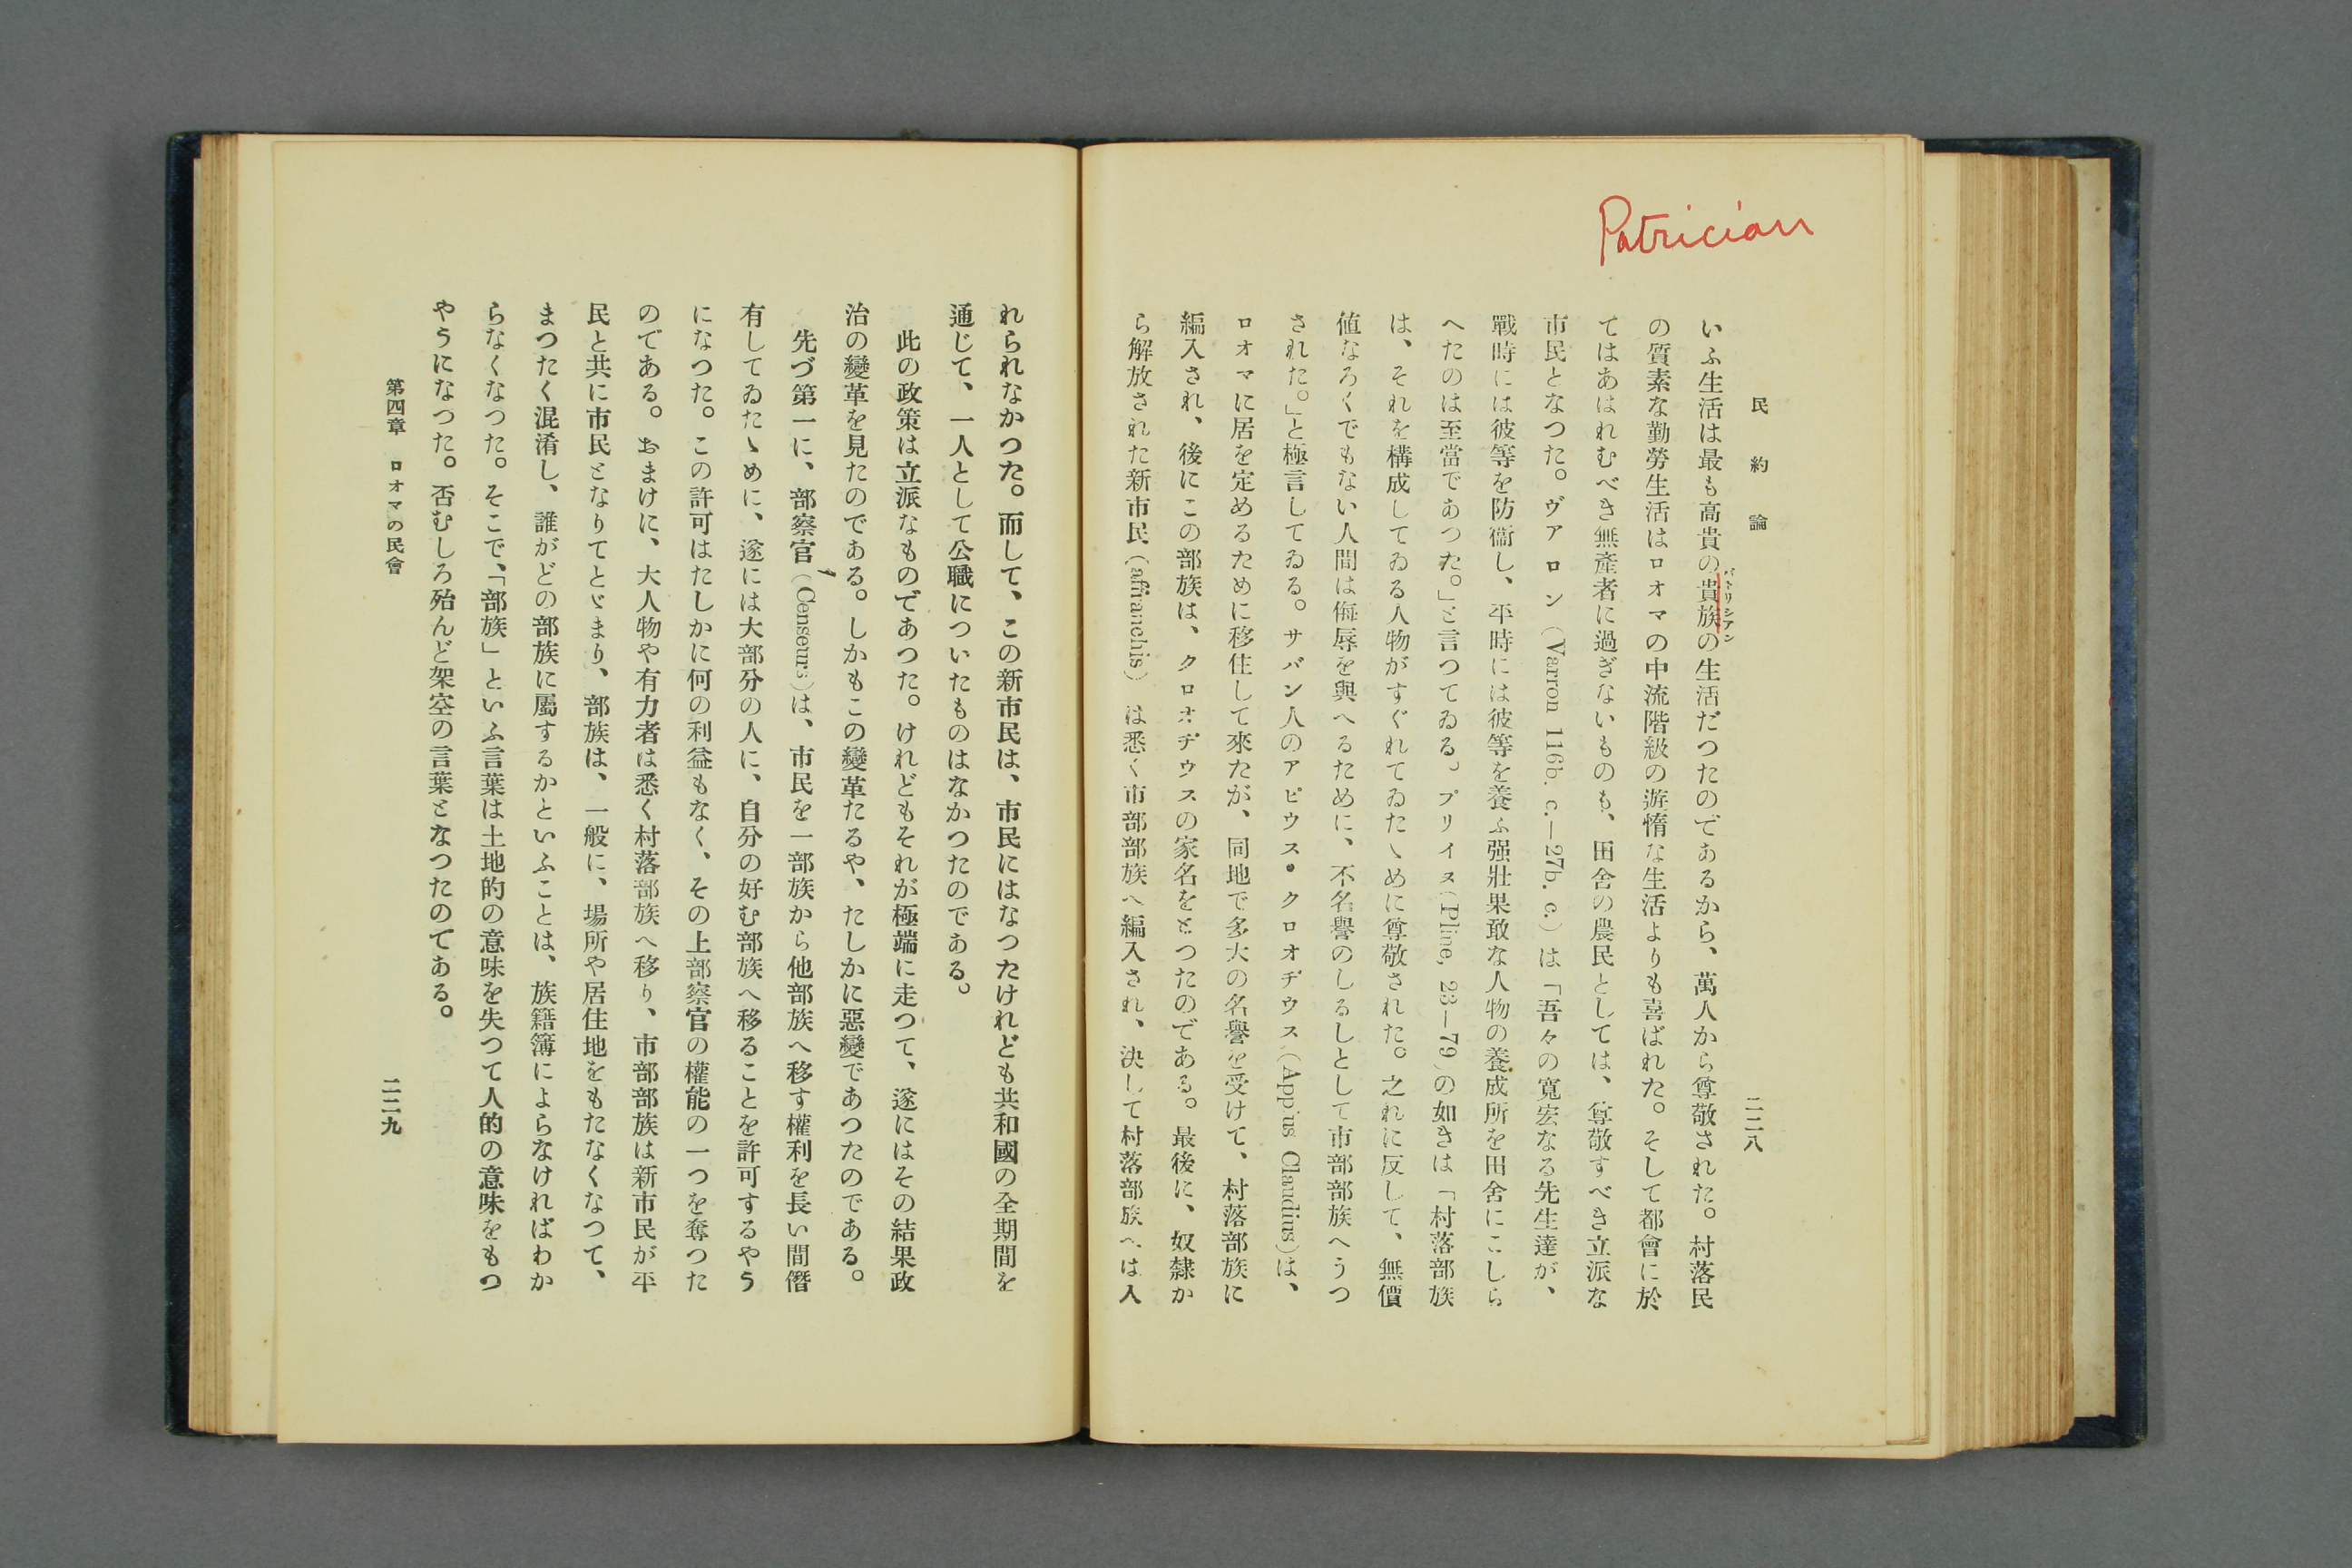 Patrician
民約論
二二八
いふ生活は最も高貴の貴族の生活だつたのであるから、萬人から尊敬された。村落民
パトリシアン
の質素な勤勞生活はロオマの中流階級の遊惰な生活よりも喜ばれた。そして都會に於
てはあはれむべき無產者に過ぎないものも、田舍の農民としては、尊敬すべき立派な
市民となつた。ヴアロン(Varron 116b. c.—27b. c.)は「吾々の寬宏なる先生達が、
戰時には彼等を防衞し、平時には彼等を養ふ强壯果敢な人物の養成所を田舍にこしら
へたのは至當であつた。」と言つてゐる。プリイヌ(Pline, 23—79)の如きは「村落部族
は、それを構成してゐる人物がすぐれてゐたゝめに尊敬された。之れに反して、無價
値なろくでもない人間は侮辱を與へるために、不名譽のしるしとして市部部族へうつ
された。」と極言してゐる。サバン人のアピウス・クロオヂウス(Appius Claudius)は、
ロオマに居を定めるために移住して來たが、同地で多大の名譽を受けて、村落部族に
編入され、後にこの部族は、クロオヂウスの家名をとつたのである。最後に、奴隸か
ら解放された新市民(affranchis)は悉く市部部族へ編入され、決して村落部族へは入
れられなかつた。而して、この新市民は、市民にはなつたけれども共和國の全期間を
通じて、一人として公職についたものはなかつたのである。
此の政策は立派なものであつた。けれどもそれが極端に走つて、遂にはその結果政
治の變革を見たのである。しかもこの變革たるや、たしかに惡變であつたのである。
先づ第一に、部察官(Censeurs)は、市民を一部族から他部族へ移す權利を長い間僭
有してゐたゝめに、遂には大部分の人に、自分の好む部族へ移ることを許可するやう
になつた。この許可はたしかに何の利益もなく、その上部察官の權能の一つを奪つた
のである。おまけに、大人物や有力者は悉く村落部族へ移り、市部部族は新市民が平
民と共に市民となりてとゞまり、部族は、一般に、場所や居住地をもたなくなつて、
まつたく混淆し、誰がどの部族に屬するかといふことは、族籍簿によらなければわか
らなくなつた。そこで、「部族」といふ言葉は土地的の意味を失つて人的の意味をもつ
やうになつた。否むしろ殆んど架空の言葉となつたのてある。
第四章 ロオマの民會
二二九